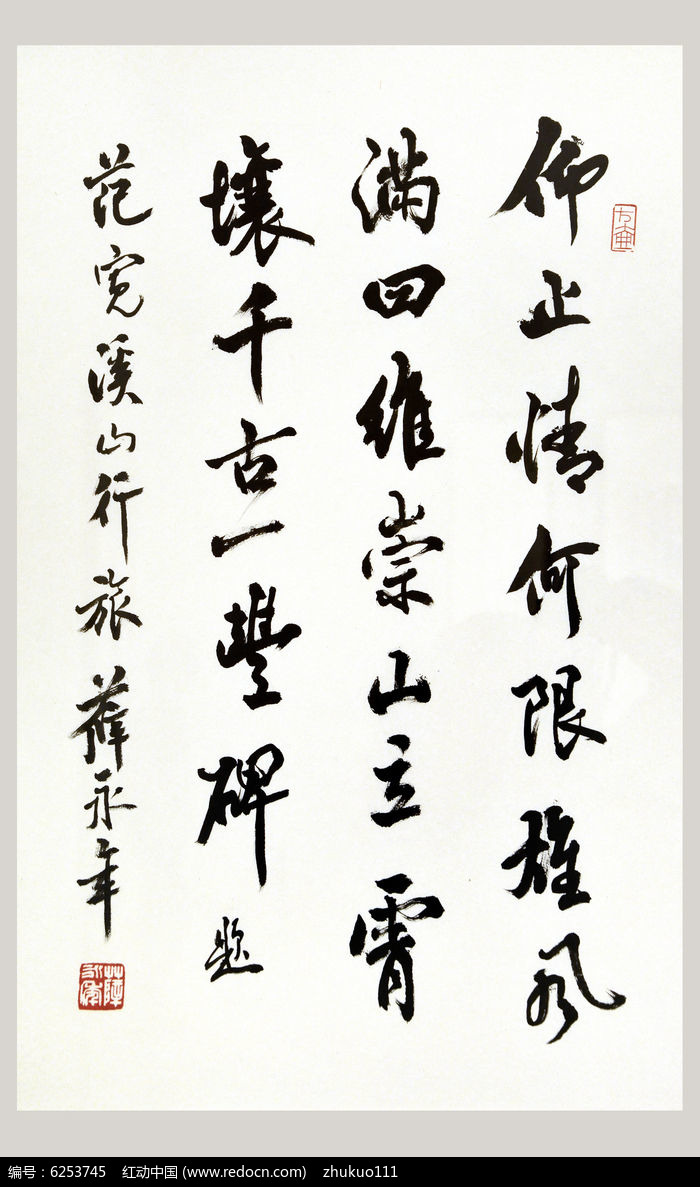 仰止情何限雄风
满四维崇山立霄
壤千古一豐碑 题
范宽溪山行旅 薛永年
编号：6253745 红动中国 (www.redocn.com) zhukuo111